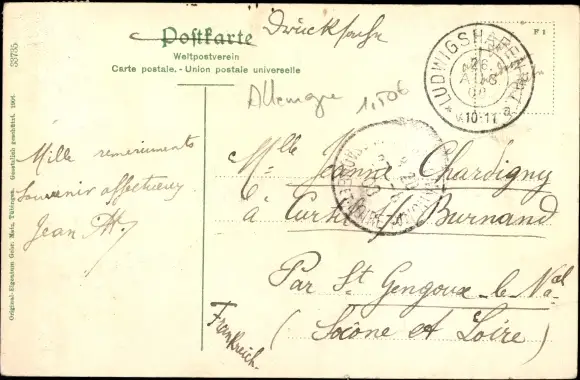 Postkarte
Drucksache
Weltpostverein
Carte postale. - Union postale universelle
F 1
LUDWIGSHAFEN
26.
AUG
V.10-11
Allemagne 1,50€
Mille remerciements
Souvenir affectueux
Jean
Mlle Jeanne Chardigny
à Curtil s/ Burnand
Par St Gengoux-le-Nal
(Saône et Loire)
Frankreich.
33735
Original-Eigentum Gebr. Metz, Tübingen. Gesetzlich geschützt. 1906.